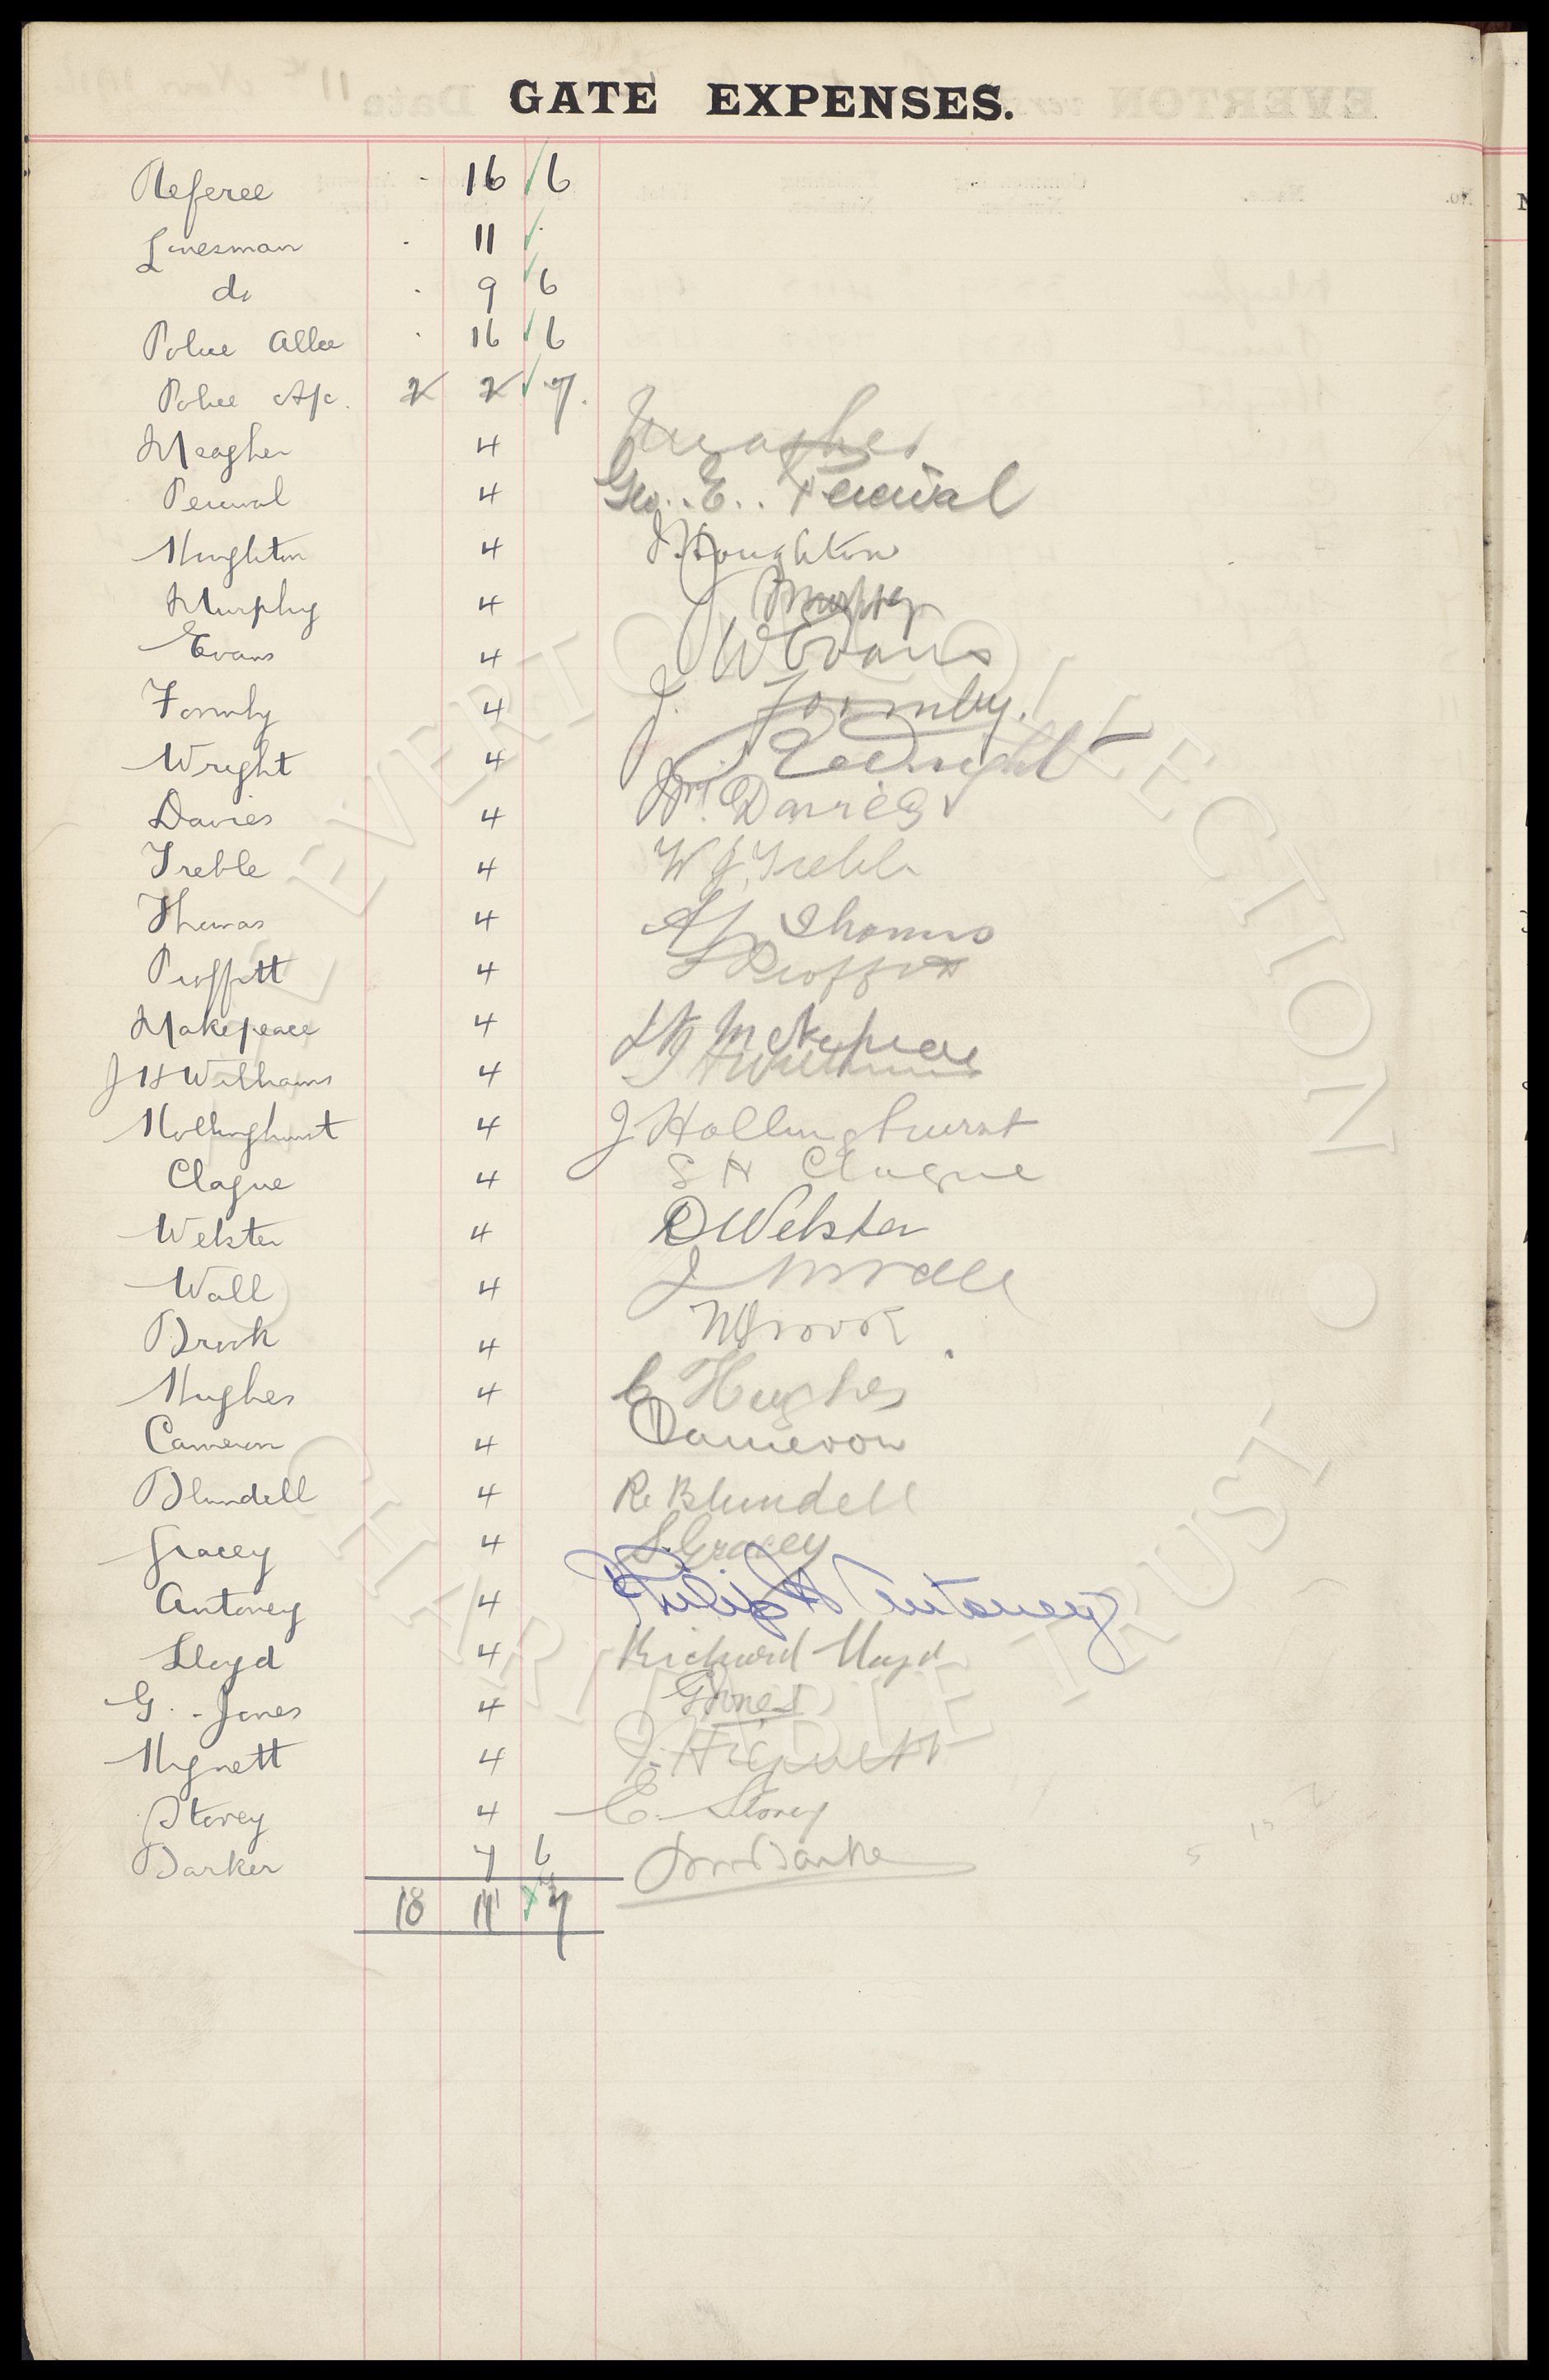 GATE EXPENSES.
Referee · 16 ✓ 6
Linesman · 11 ✓ ·
do · 9 ✓ 6
Police Allce · 16 ✓ 6
Police A/c. 2 2 ✓ 7.
Meagher 4 Meagher
Percival 4 Geo.. E.. Percival
Houghton 4 J Houghton
Murphy 4 J Murphy
Evans 4 J W Evans
Formby 4 J. Formby.
Wright 4
Davies 4 Wm. Davies
Treble 4 W J Treble
Thomas 4 Thomas
Proffitt 4 Proffitt
Makepeace 4 Makepeace
J H Williams 4 J H Williams
Hollinghurst 4 J Hollinghurst
Clague 4 S H Clague
Webster 4 D Webster
Wall 4 J Wall
Brook 4 Brook
Hughes 4 Hughes
Cameron 4 Cameron
Blundell 4 R. Blundell
Gracey 4 S. Gracey
Antoney 4 Philip H Antoney
Lloyd 4 Richard Lloyd
G. - Jones 4 G Jones
Hignett 4 J. Hignett
Storey 4 E. Storey
Barker 7 6 Barker
18 11 ✓ 7
EVERTON COLLECTION CHARITABLE TRUST